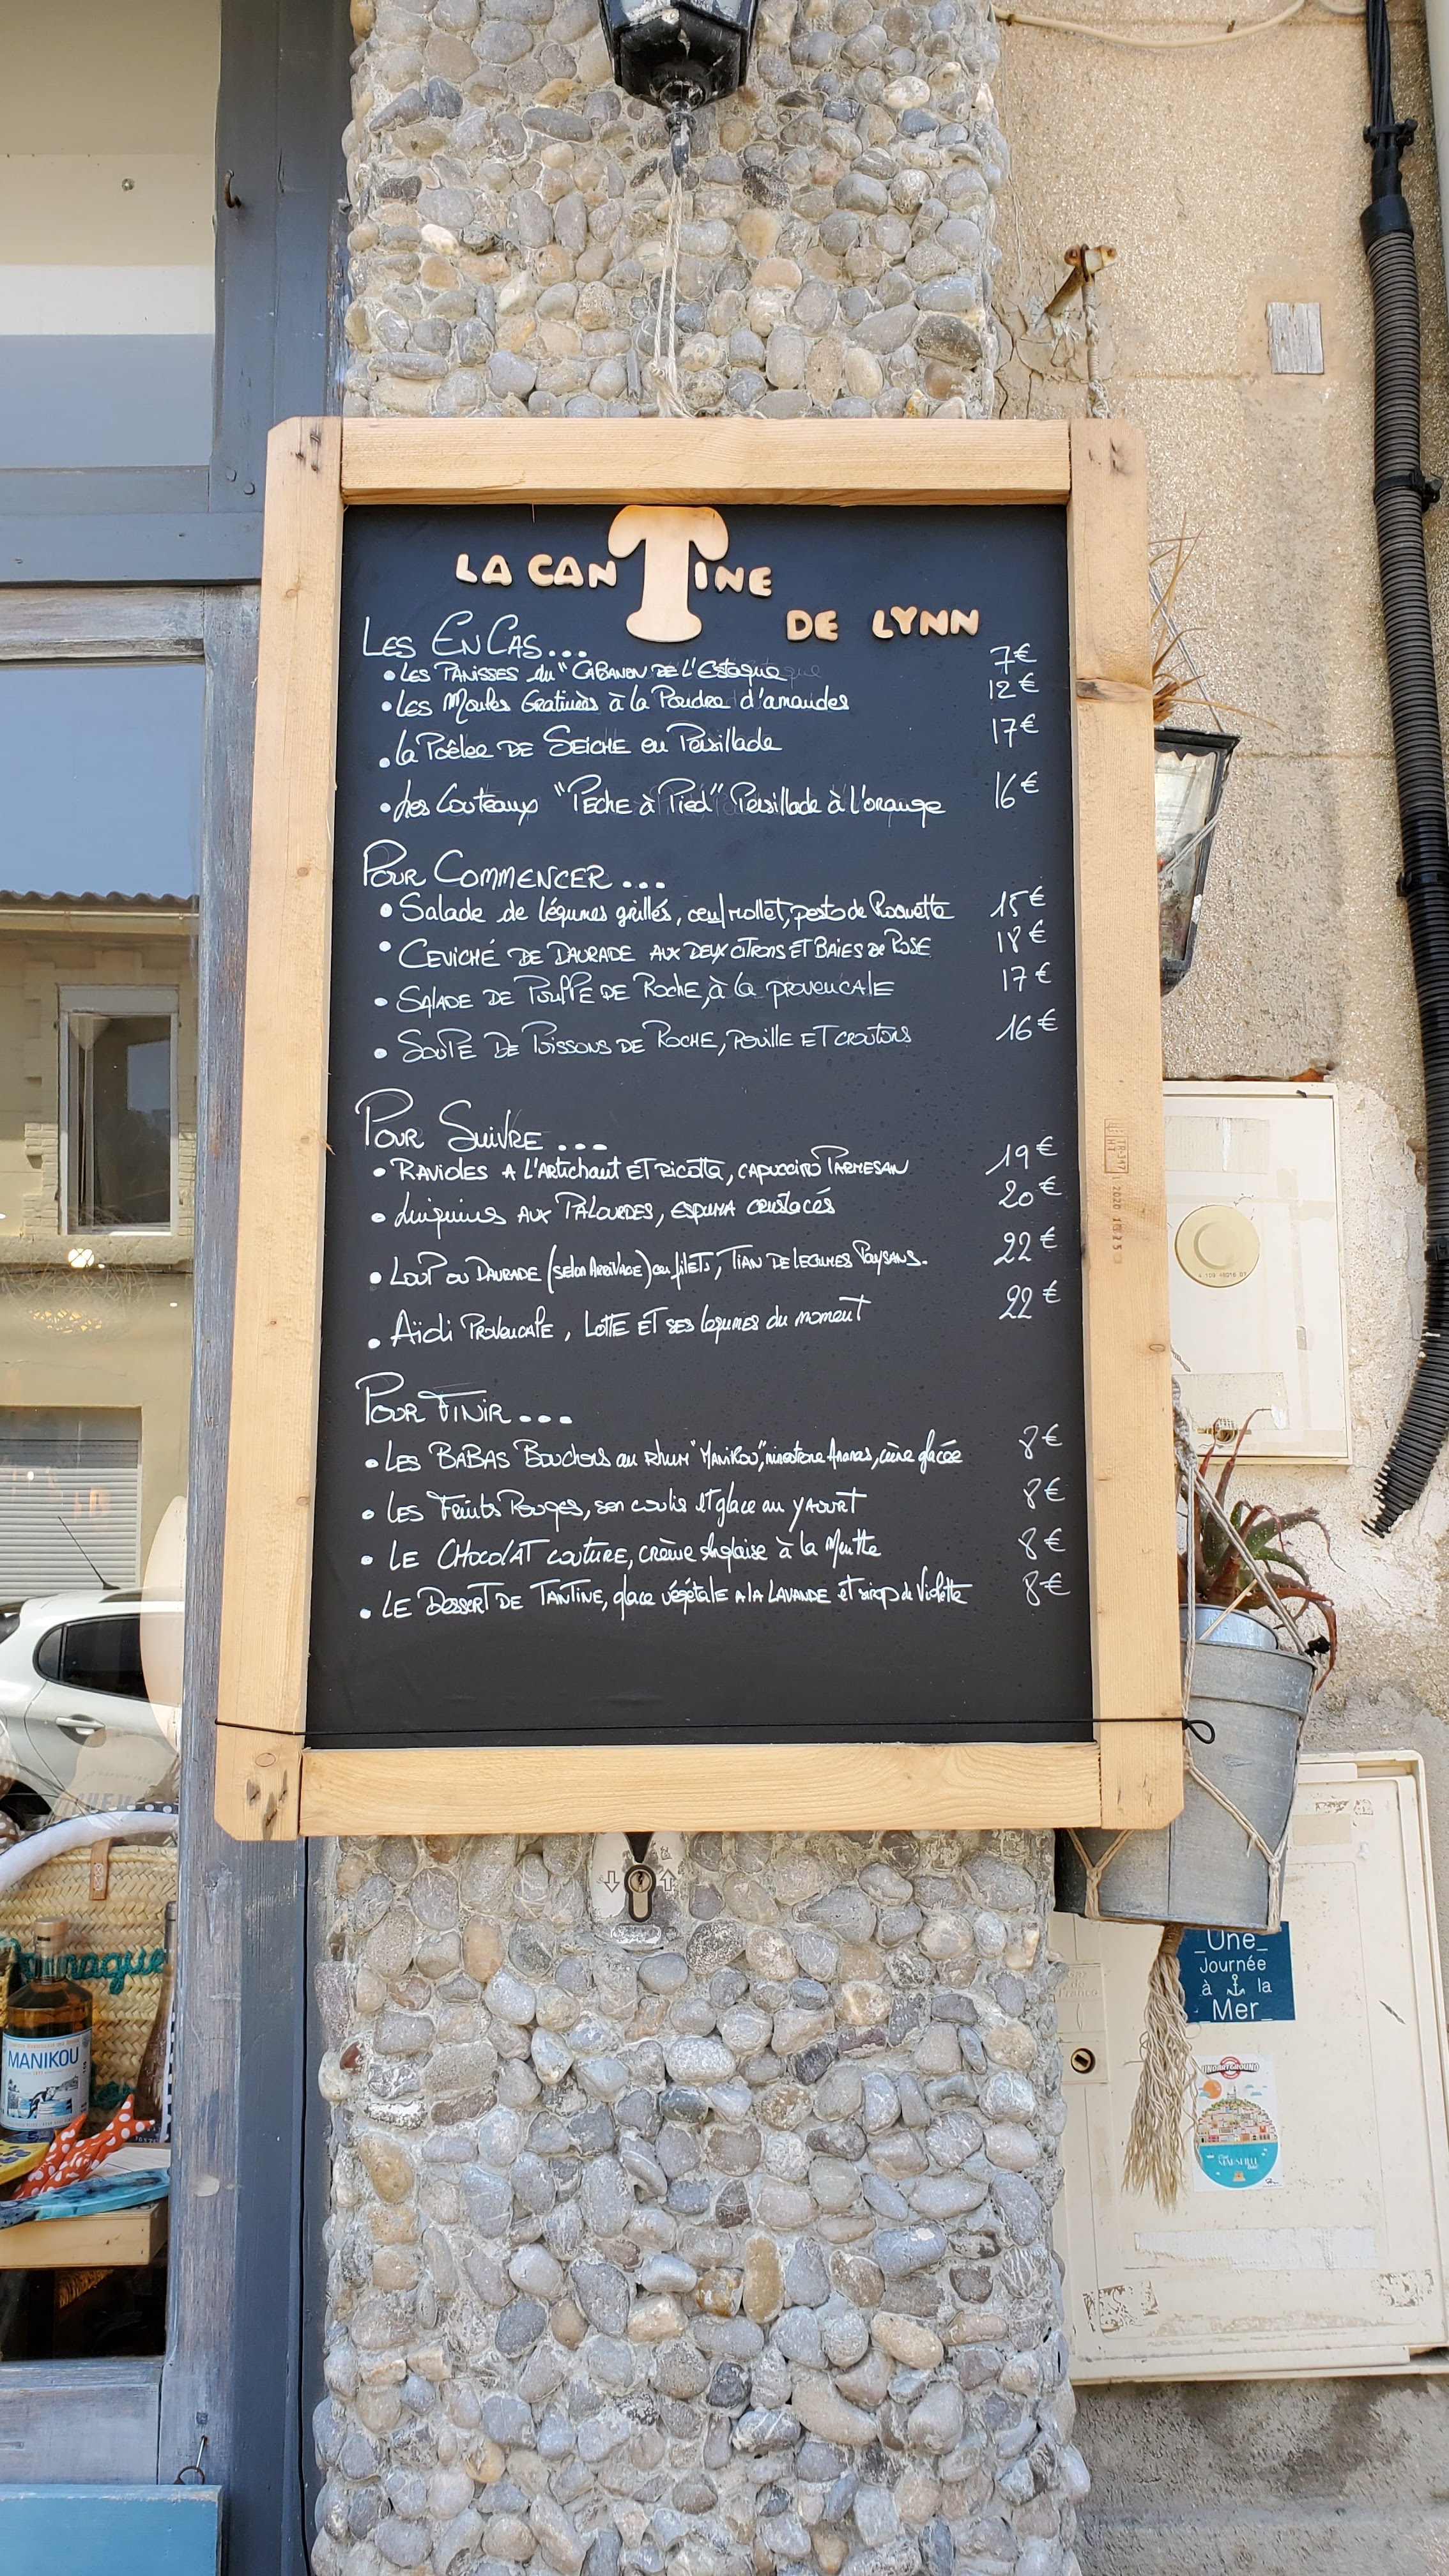 LA CANTINE
DE LYNN
LES EN CAS...
• LES PANISSES du "CABANON DE L'Estaque 7€
• Les Moules Gratinées à la Poudre d'amandes 12€
• la Poêlée DE SEICHE en Persillade 17€
• Les Couteaux "PECHE à PiED" Persillade à l'orange 16€
POUR COMMENCER...
• Salade de légumes grillés, oeuf mollet, pesto de Roquette 15€
• CEVICHÉ DE DAURADE AUX DEUX CITRONS ET BAIES DE ROSE 18€
• SALADE DE POULPE DE ROCHE, à la PROVENCALE 17€
• SOUPE DE POISSONS DE ROCHE, ROUILLE ET CROUTONS 16€
POUR SUIVRE...
• RAVIOLES A L'ARTICHAUT ET RICOTTA, CAPUCCINO PARMESAN 19€
• Linguines AUX PALOURDES, ESPUMA CRUSTACÉS 20€
• LOUP OU DAURADE (selon ARRIVAGE) en filets, TIAN DE LEGUMES PAYSANS. 22€
• Aïoli PROVENCALE, LOTTE ET SES legumes du moment 22€
POUR FINIR...
• LES BABAS Bouchons au RHUM "MANIKOU", minestrone Ananas, crème glacée 8€
• LES Fruits Rouges, son coulis et glace au YAOURT 8€
• LE CHOCOLAT COUTURE, crème Anglaise à la Menthe 8€
• LE DESSERT DE TANTINE, glace végétale A LA LAVANDE et sirop de Violette 8€
MANIKOU
Une
Journée
à la
Mer
UNDARTGROUND
MARSEILLE